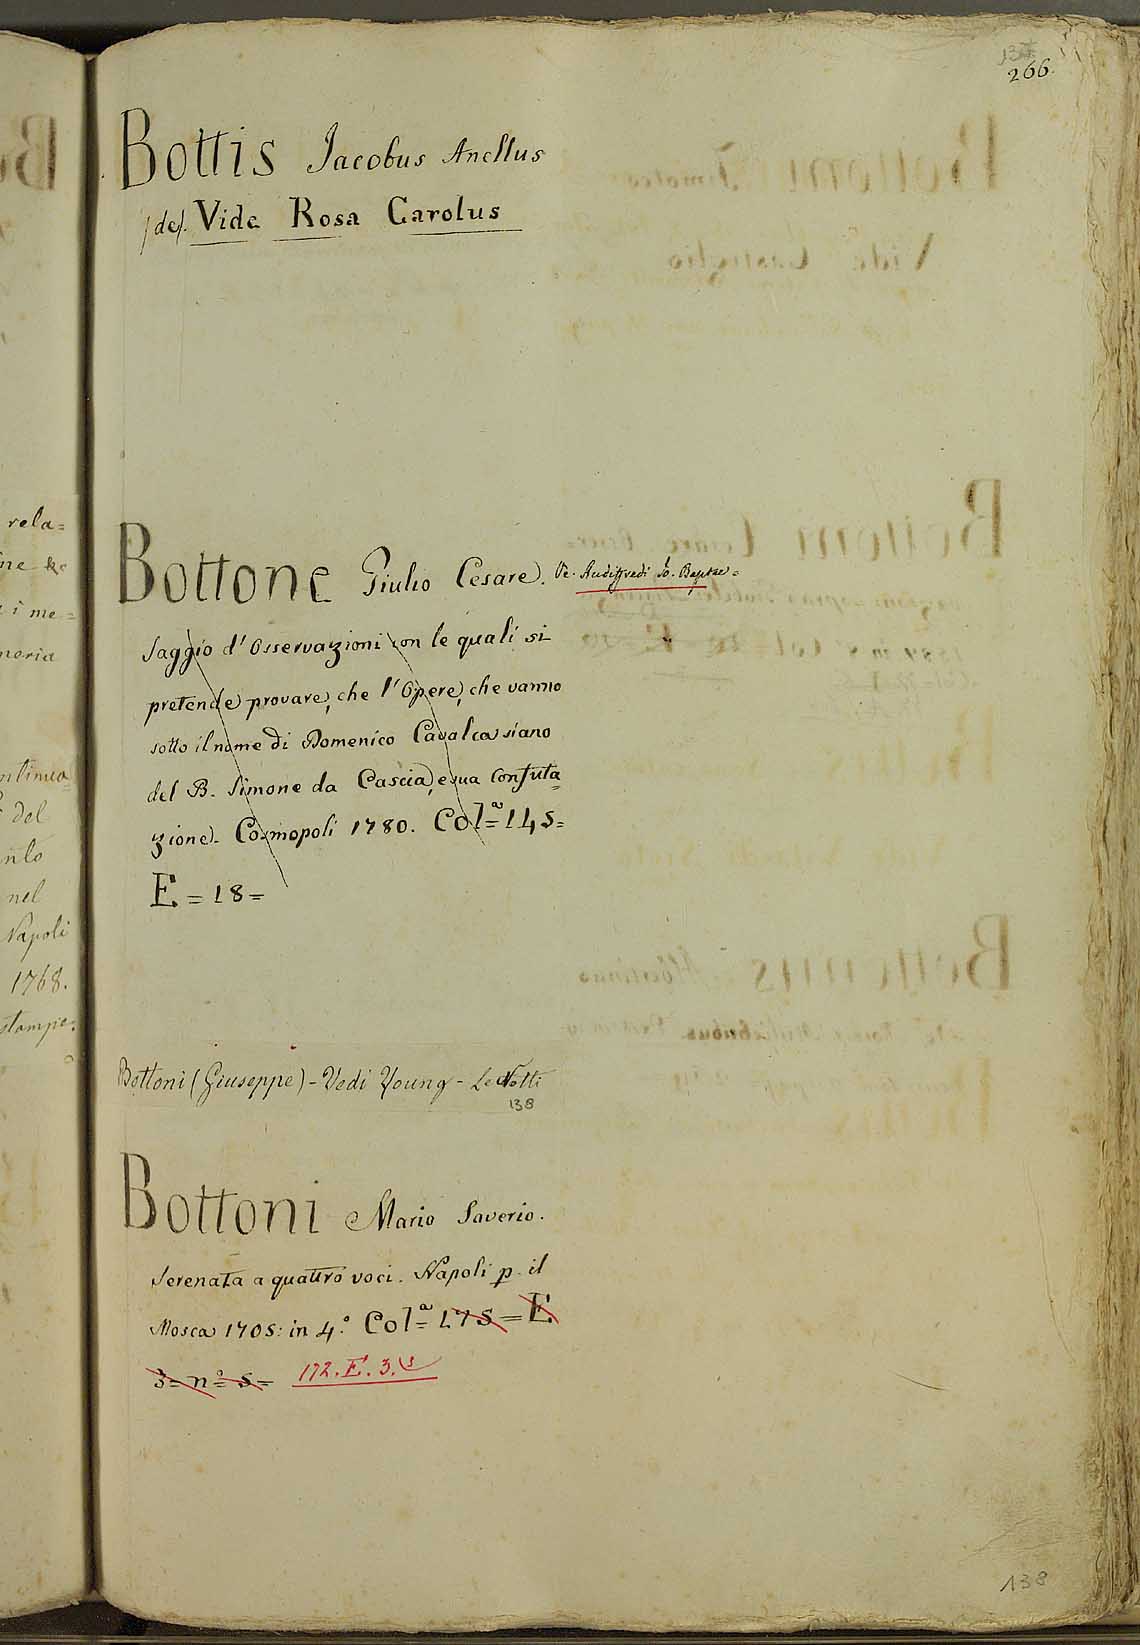 266.
Bottis Jacobus Anellus
(de). Vide Rosa Carolus
Bottone Giulio Cesare. Ve. Audiffredi Jo. Baptae=
Saggio d'Osservazioni con le quali si
pretende provare, che l'Opere, che vanno
sotto il nome di Domenico Cavalca siano
del B. Simone da Cascia, e sua Confuta=
zione. Cosmopoli 1780. Col.ª=14s=
E=18=
Bottoni (Giuseppe) - Vedi Young - Le Notti
138
Bottoni Mario Saverio.
Serenata a quattro voci. Napoli p. il
Mosca 1705: in 4.º Col.ª=17s=E
3=nº=s= 172.E.3.(5
138
rela=
ne ke
i me=
moria
ntinua
del
nlo
nel
Napoli
1768.
stampe.